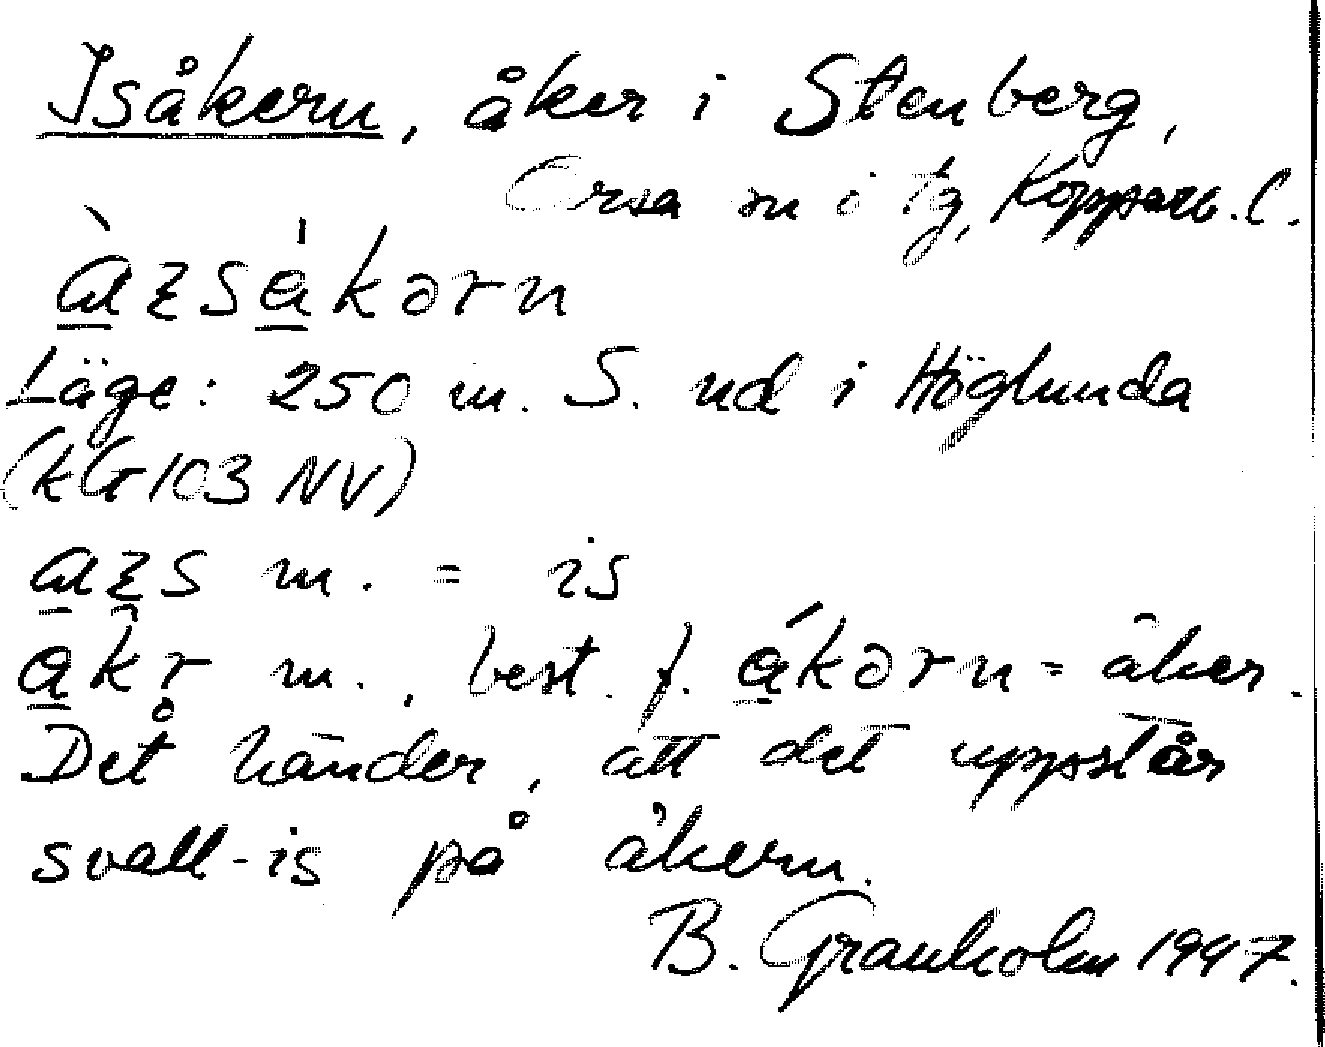 Isåkern, åker i Stenberg,
Orsa sn i tg, Kopparb. l.
àɪsákərn
Läge: 250 m. S. ud i Höglunda
(kG 103 NV)
aɪs m. = is
akr̥ m., best. f. ákərn = åker.
Det händer, att det uppstår
svall-is på åkern.
B. Granholm 1997.